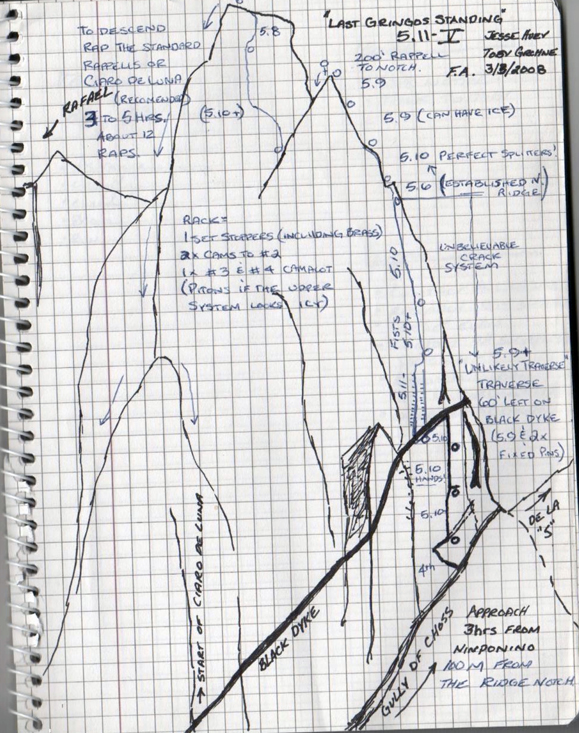 "LAST GRINGOS STANDING"
5.11- V
JESSE HUEY
TOBY GROHNE
F.A. 3/3/2008
TO DESCEND
RAP THE STANDARD
RAPPELLS OR
CIARO DE LUNA
(RECOMENDED)
3 TO 5 HRS.
ABOUT 12
RAPS.
RAFAEL
5.8
(5.10+)
200' RAPPELL
TO NOTCH.
5.9
5.9 (CAN HAVE ICE)
5.10 PERFECT SPLITERS'
5.6 (ESTABLISHED N.
RIDGE)
RACK=
1 SET STOPPERS (INCLUDING BRASS)
2x CAMS TO #2
1x #3 & #4 CAMALOT
(PITONS IF THE UPPER
SYSTEM LOOKS ICY)
UNBELIEVABLE
CRACK
SYSTEM
5.10
FISTS
5.10+
5.11-
5.9+
"UNLIKELY TRAVERSE"
TRAVERSE
60' LEFT ON
BLACK DYKE
(5.9 & 2x
FIXED PINS)
5.10
5.10
HANDS
5.10
4th
DE LA
"S"
→ START OF CIARO DE LUNA
BLACK DYKE
GULLY OF CHOSS
APPROACH
3hrs FROM
NINPONINO
100M FROM
THE RIDGE NOTCH